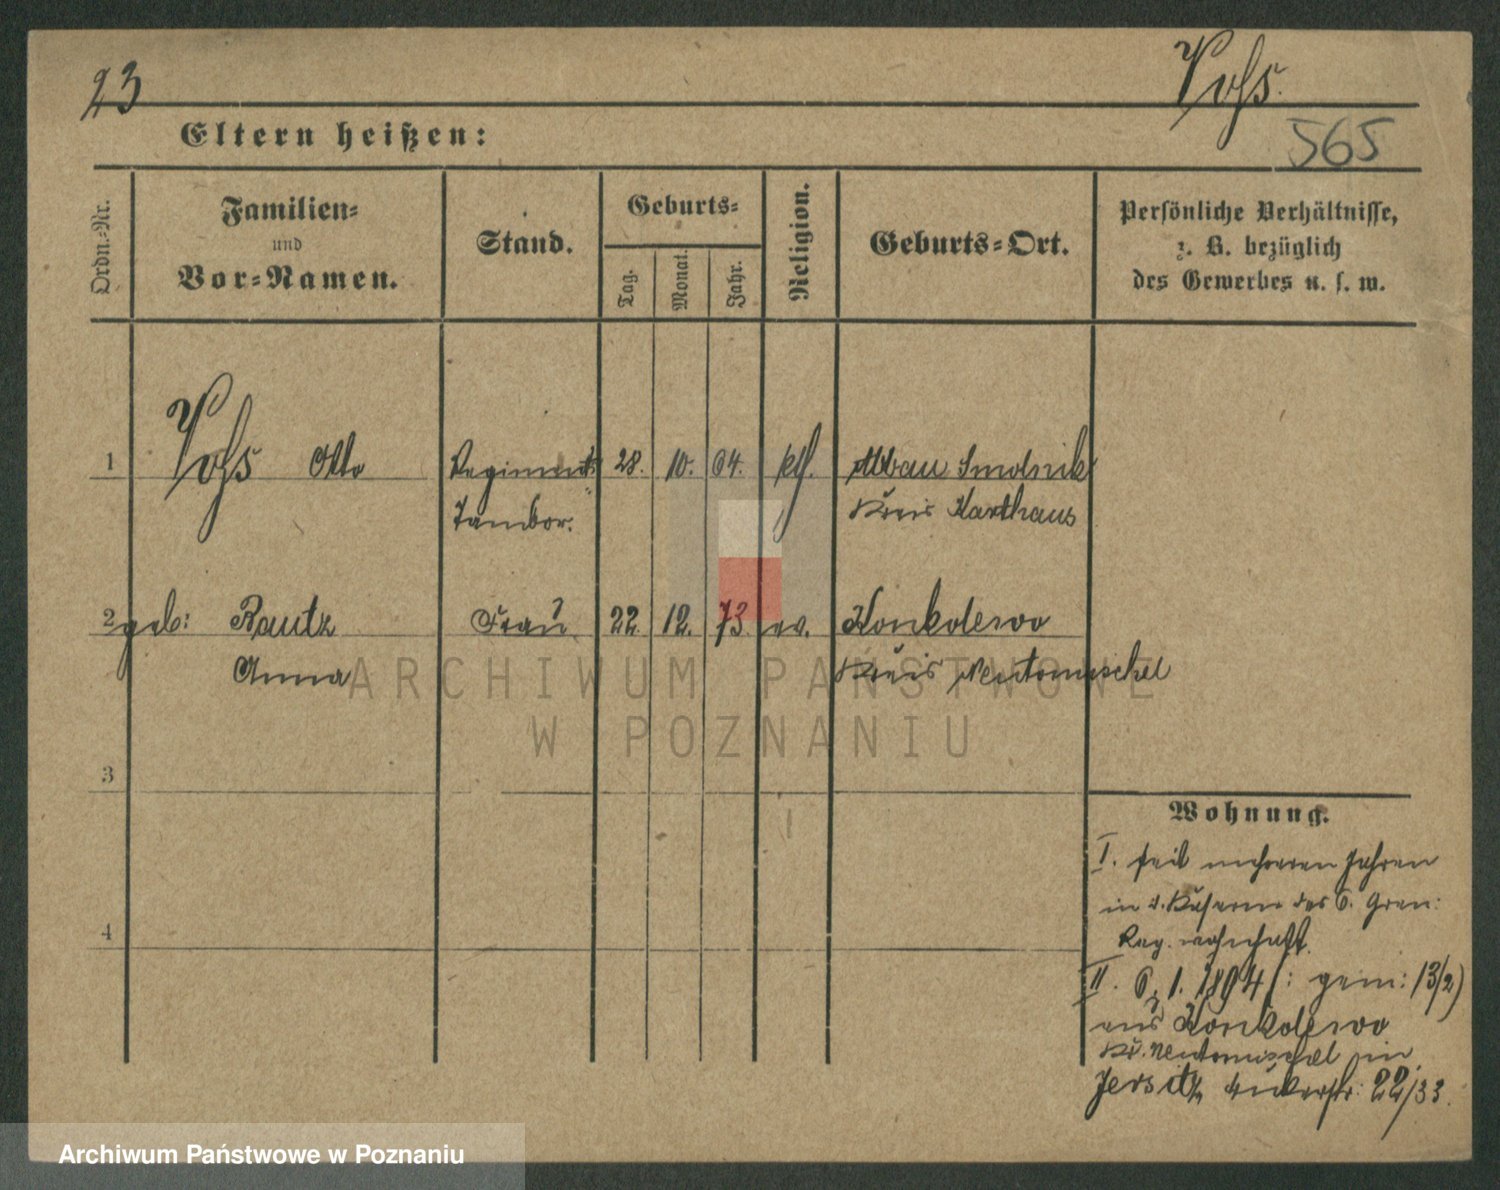 23
Vohs.
565
Eltern heißen:
Ordn.-Nr.
Familien-
und
Vor-Namen.
Stand.
Geburts-
Tag.
Monat.
Jahr.
Religion.
Geburts-Ort.
Persönliche Verhältnisse,
z. B. bezüglich
des Gewerbes u. s. w.
1 Vohs Otto Regiments 28. 10. 64. kth. Abbau Smolnik
Tambor. Kreis Karthaus
2 geb: Rautz Frau 22. 12. 73. ev. Konkolewo
Anna Kreis Neutomischel
3
4
Wohnung.
I. seit mehreren Jahren
in d. Kaserne des 6. Gren:
Reg. wohnhaft.
II. 6. 1. 1894 (: gem: 13/2)
aus Konkolewo
Kr. Neutomischel in
Jersitz 22/33.
ARCHIWUM PAŃSTWOWE
W POZNANIU
Archiwum Państwowe w Poznaniu